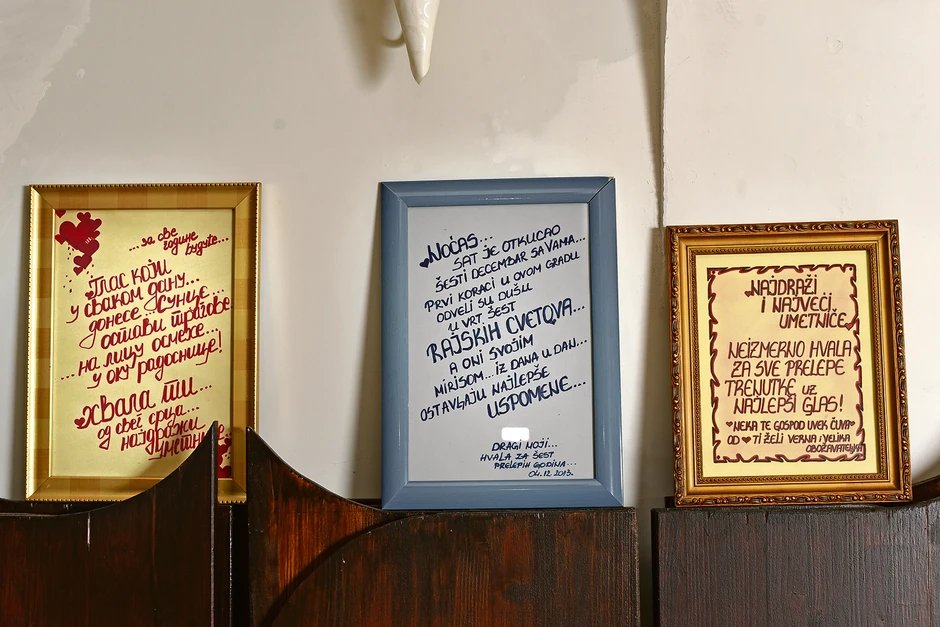 ...за све
године
будите...
Глас који
у сваком дану...
донесе... Сунце...
остави трагове
на лицу осмехе...
...у оку радоснице!
Хвала ти...
од свег срца...
најдражи
уметниче
NOĆAS...
SAT JE OTKUCAO
ŠESTI DECEMBAR SA VAMA...
PRVI KORACI U OVOM GRADU
ODVELI SU DUŠU
U VRT ŠEST
RAJSKIH CVETOVA...
A ONI SVOJIM
MIRISOM... IZ DANA U DAN...
OSTAVLJAJU NAJLEPŠE
USPOMENE...
DRAGI MOJI...
HVALA ZA ŠEST
PRELEPIH GODINA...
04.12.2013.
NAJDRAŽI
I NAJVEĆI
UMETNIČE,
NEIZMERNO HVALA
ZA SVE PRELEPE
TRENUTKE UZ
NAJLEPŠI GLAS!
NEKA TE GOSPOD UVEK ČUVA
OD ♥ TI ŽELI VERNA I VELIKA
OBOŽAVATELJKA